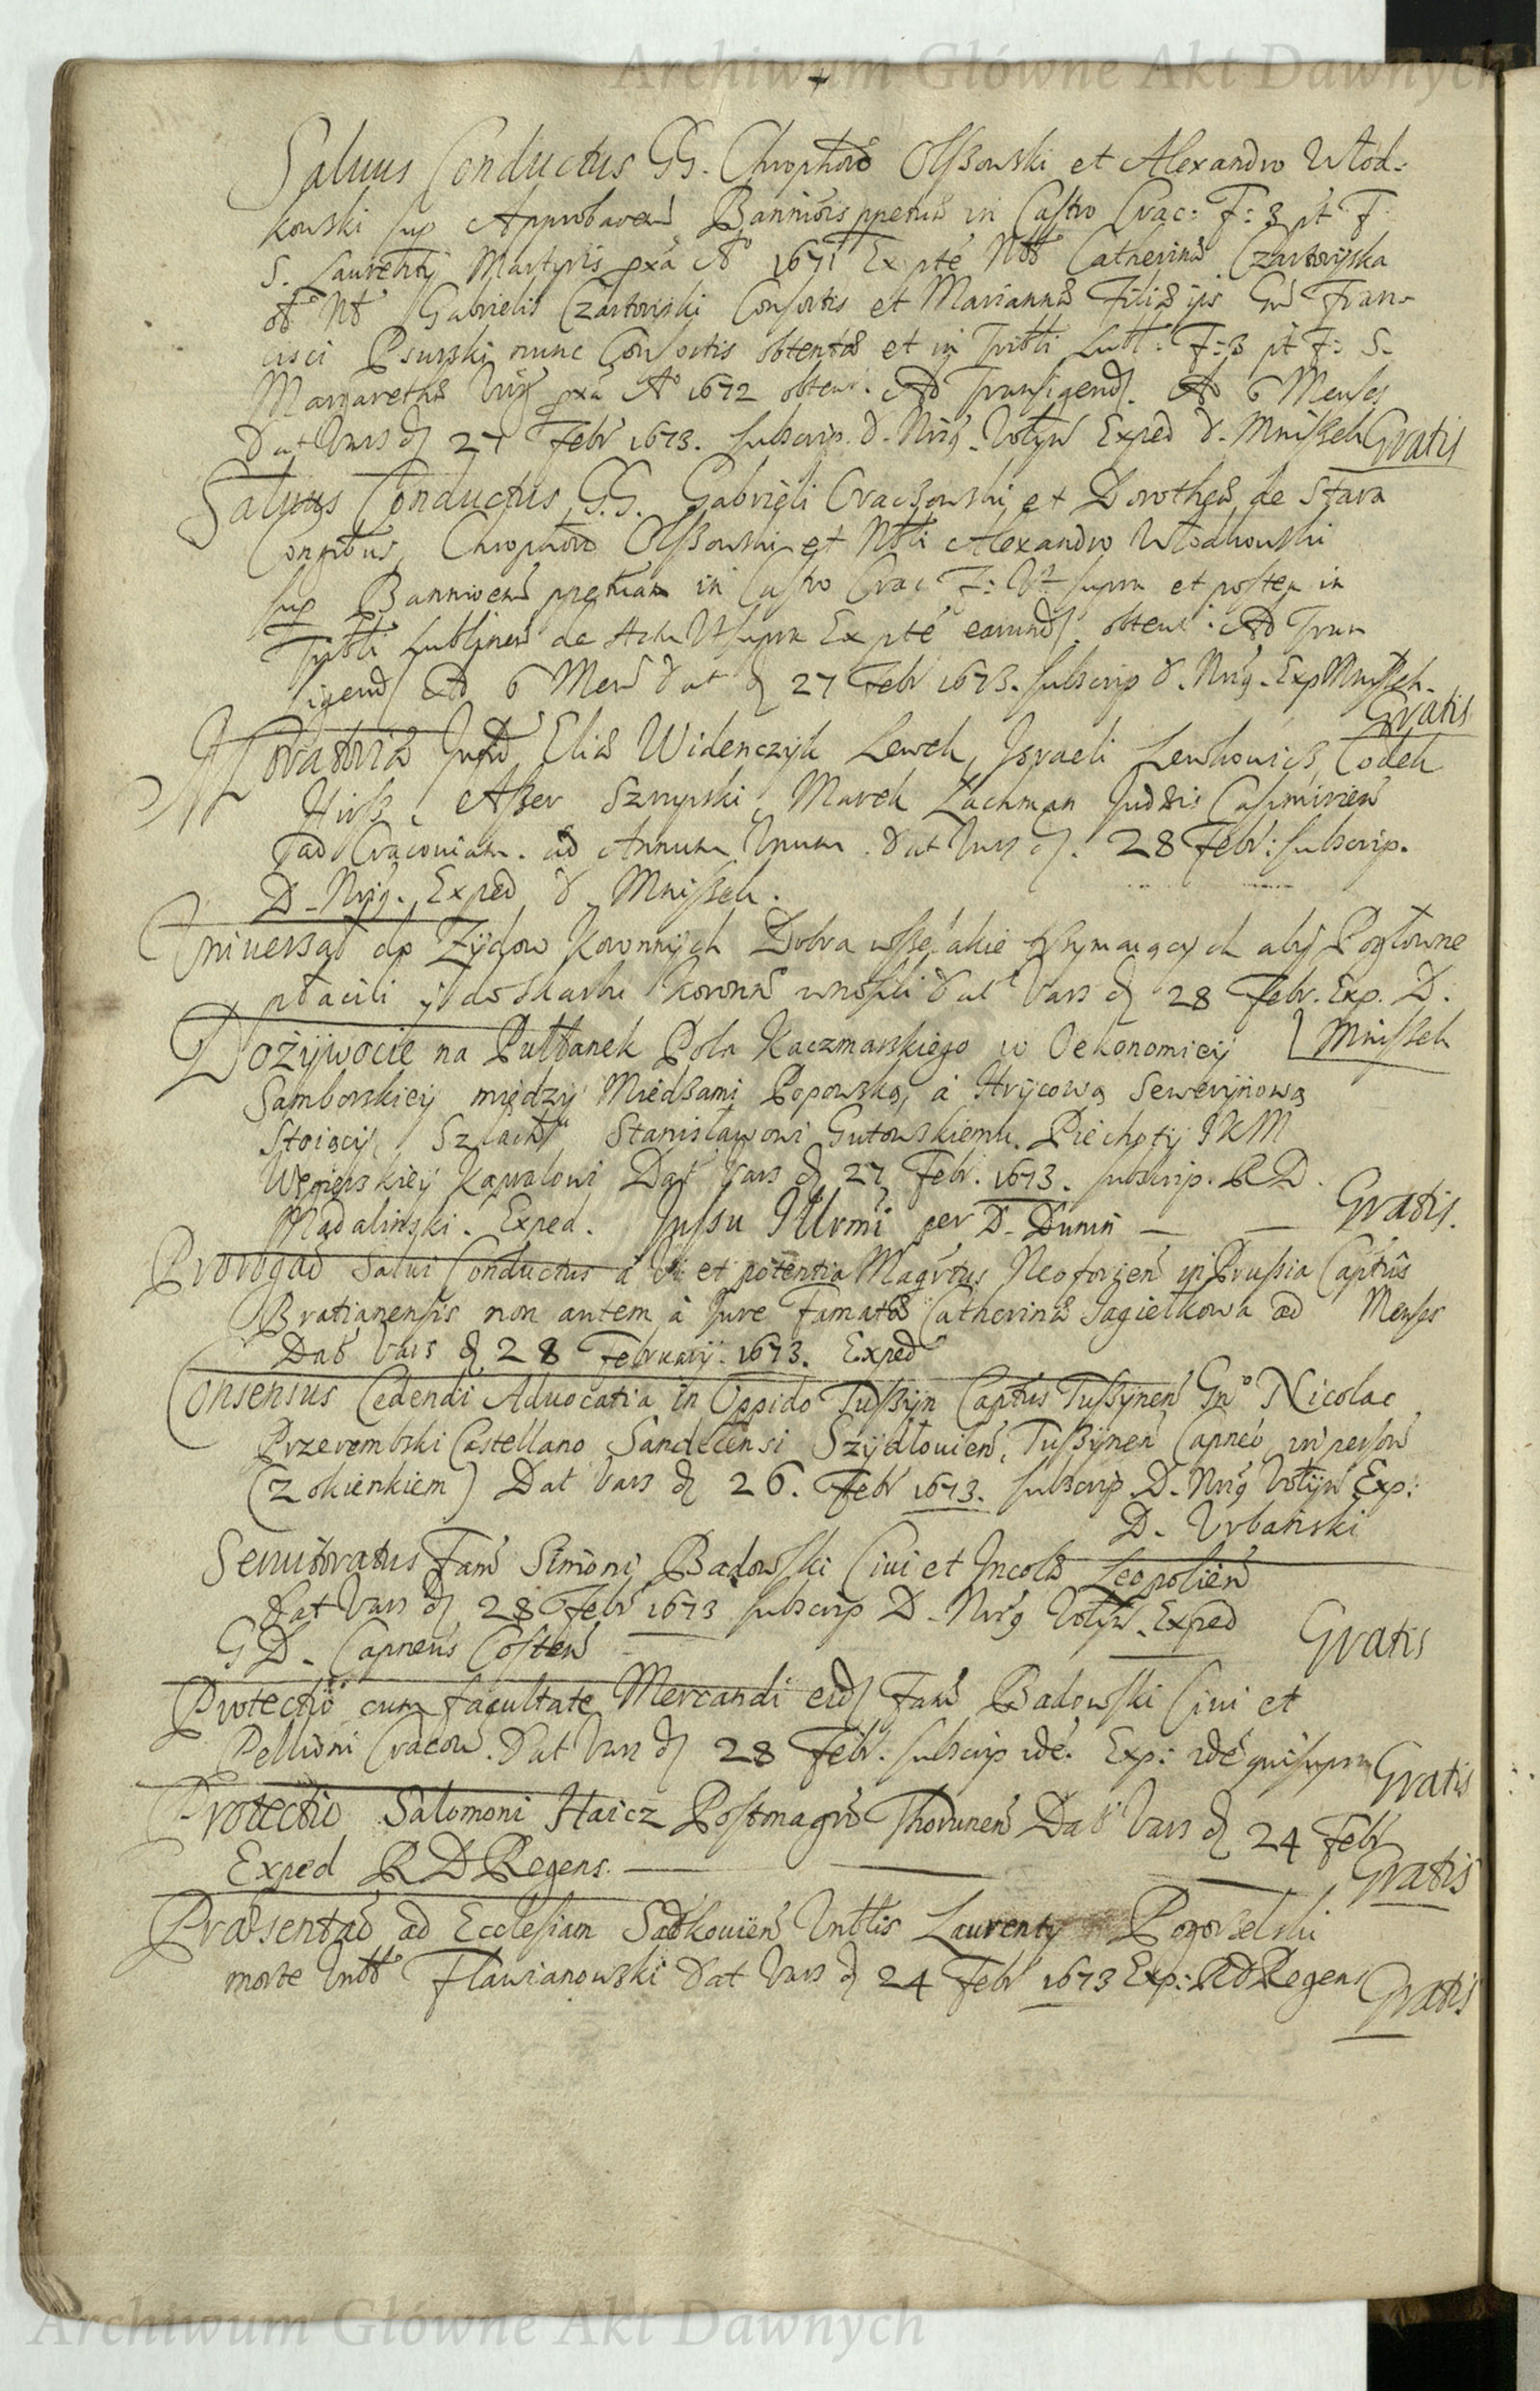 Archiwum Główne Akt Dawnych
Salvus Conductus GG. Chrophoro Olszowski et Alexandro Włod-
kowski sup Approbaven Bannitois ppetuae in Castro Crac: F: 3 pt F
S. Laurentij Martyris pxa A° 1671 Ex pte Catherinae Czartoryska
Gabrielis Czartoriski Consortis et Mariannae Filiae ips Gn Fran-
cisci Psurski nunc Consortis obtentae et in Tribli Lubl: F: 3 pt F: S.
Margarethae Virg pxa A° 1672 obten. Ad Transigend. Ad 6 Menses
Dat Vars d 27 Febr 1673. subscrip. D. Nrig. Volyn Exped D. Mniszek Gratis
Salvus Conductus G.G. Gabrieli Craczowski et Dorotheae de Stara
Conjibus, Chrophoro Olszowski et Nbli Alexandro Włodkowski
sup Bannioem ppetuam in Castro Crac F: Vt supra et postea in
Tribli Lublinen de Actu Vt supra Ex pte earund obten: Ad Tran
sigend Ad 6 Men Dat d 27 Febr 1673. subscrip D. Nrig. Exp Mniszek.
Gratis
Moratoriae Jnfid Eliae Widenczyk Lewek, Jsraeli Lewkowicz, Codek
Hirsz, Aszer Szrupski, Marek Lachman Judaeis Casimirien
ad Cracoviam. ad Annum Vnum. Dat Vars d. 28 Febr: subscrip.
D. Nrig. Exped D Mniszek.
Vniversał do Zydow Koronnych Dobra wszelakie trzymaiących aby Pogłowne
płacili y do skarbu koronn wnosili Dat Vars d 28 Febr. Exp. D.
Mniszek
Dożywocie na Pułłanek Pola Kaczmarskiego w Oekonomiey
Samborskiey między Miedzami Popowską, a Hrycową Sewerynową
Stoiący, Szlach Stanisławowi Gutowskiemu Piechoty JKM
Węgierskiey Kapralowi Dat Vars d 27 Febr. 1673. subscrip. R D.
Madalinski. Exped. Jussu Jllrmi per D. Dunin Gratis.
Prorogao Salvi Conductus a Vi et potentia Magrtus Neoforien in Prussia Captus
Bratianensis non autem a Jure Famatae Catherinae Jagiełkowa ad Menses
Dat Vars d 28 Februarij. 1673. Exped
Consensus Cedendi Advocatia in Oppido Tuszyn Captus Tuszynen Gn° Nicolao
Przerembski Castellano Sandecensi Szydlovien, Tuszynen Capneo in person
(z okienkiem) Dat Vars d 26. Febr 1673. subscrip. D. Nrig Volyn Exp:
D. Vrbański
Servitoratus Fam Simoni Badowski Civi et Jncolae Leopolien
Dat Vars d 28 Febr 1673 subscrip D. Nrig Volyn. Exped
G D. Capneus Costen Gratis
Protectio cum facultate Mercandi eid Fam Badowski Civi et
Pellioni Cracov. Dat Vars d 28 Febr. subscrip ide. Exp: ide qui supra Gratis
Protectio Salomoni Haicz Postmagro Thorunen Dat Vars d 24 Febr
Exped R D Regens. Gratis
Praesentao ad Ecclesiam Satkovien Vnblis Laurenty Pogorzelski
morte Vnbl Flawianowski Dat Vars d 24 Febr 1673 Exp: R D Regens Gratis
Archiwum Główne Akt Dawnych